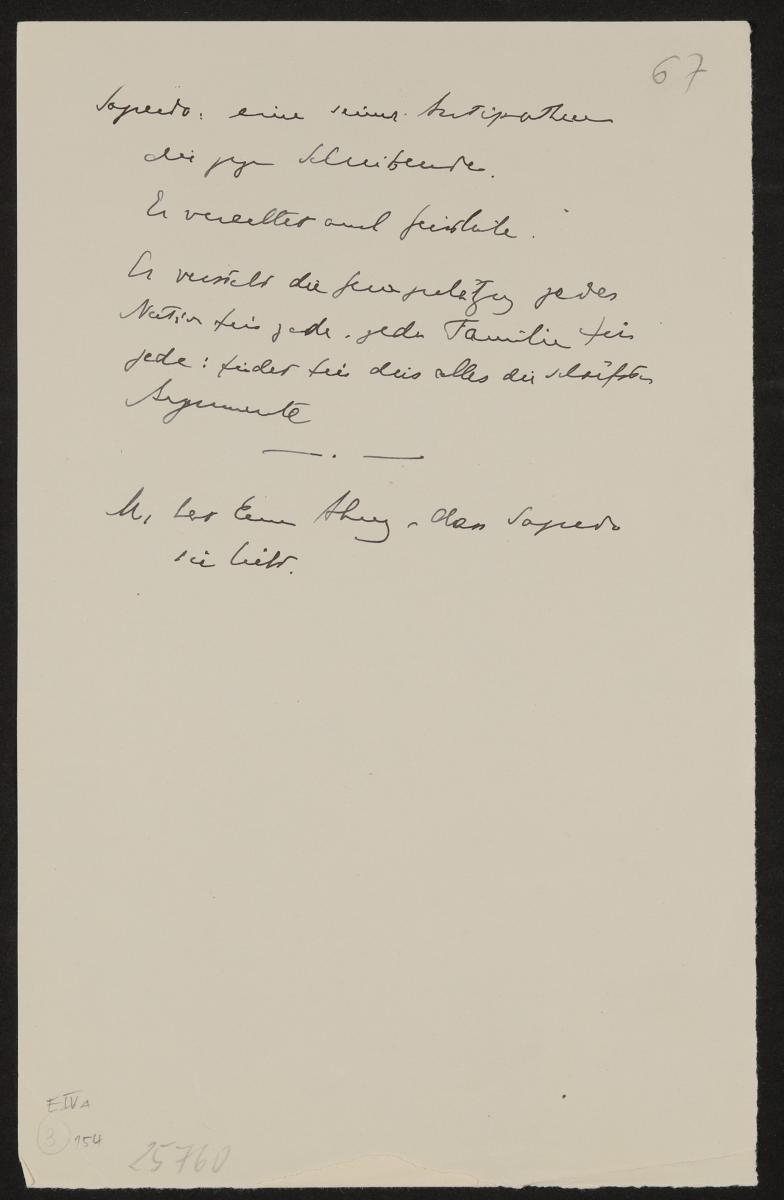 67
Sagredo: eine seiner Antipathien
die gegen Schreibende.
Er verachtet auch
Er versteht die Geringschätzung jeder
Nation für jede, jeder Familie für
jede: findet für dies alles die schärfsten
Argumente
— . —
M, hat keine Ahnung, dass Sagredo
sie liebt.
E IV A
3 154
25760